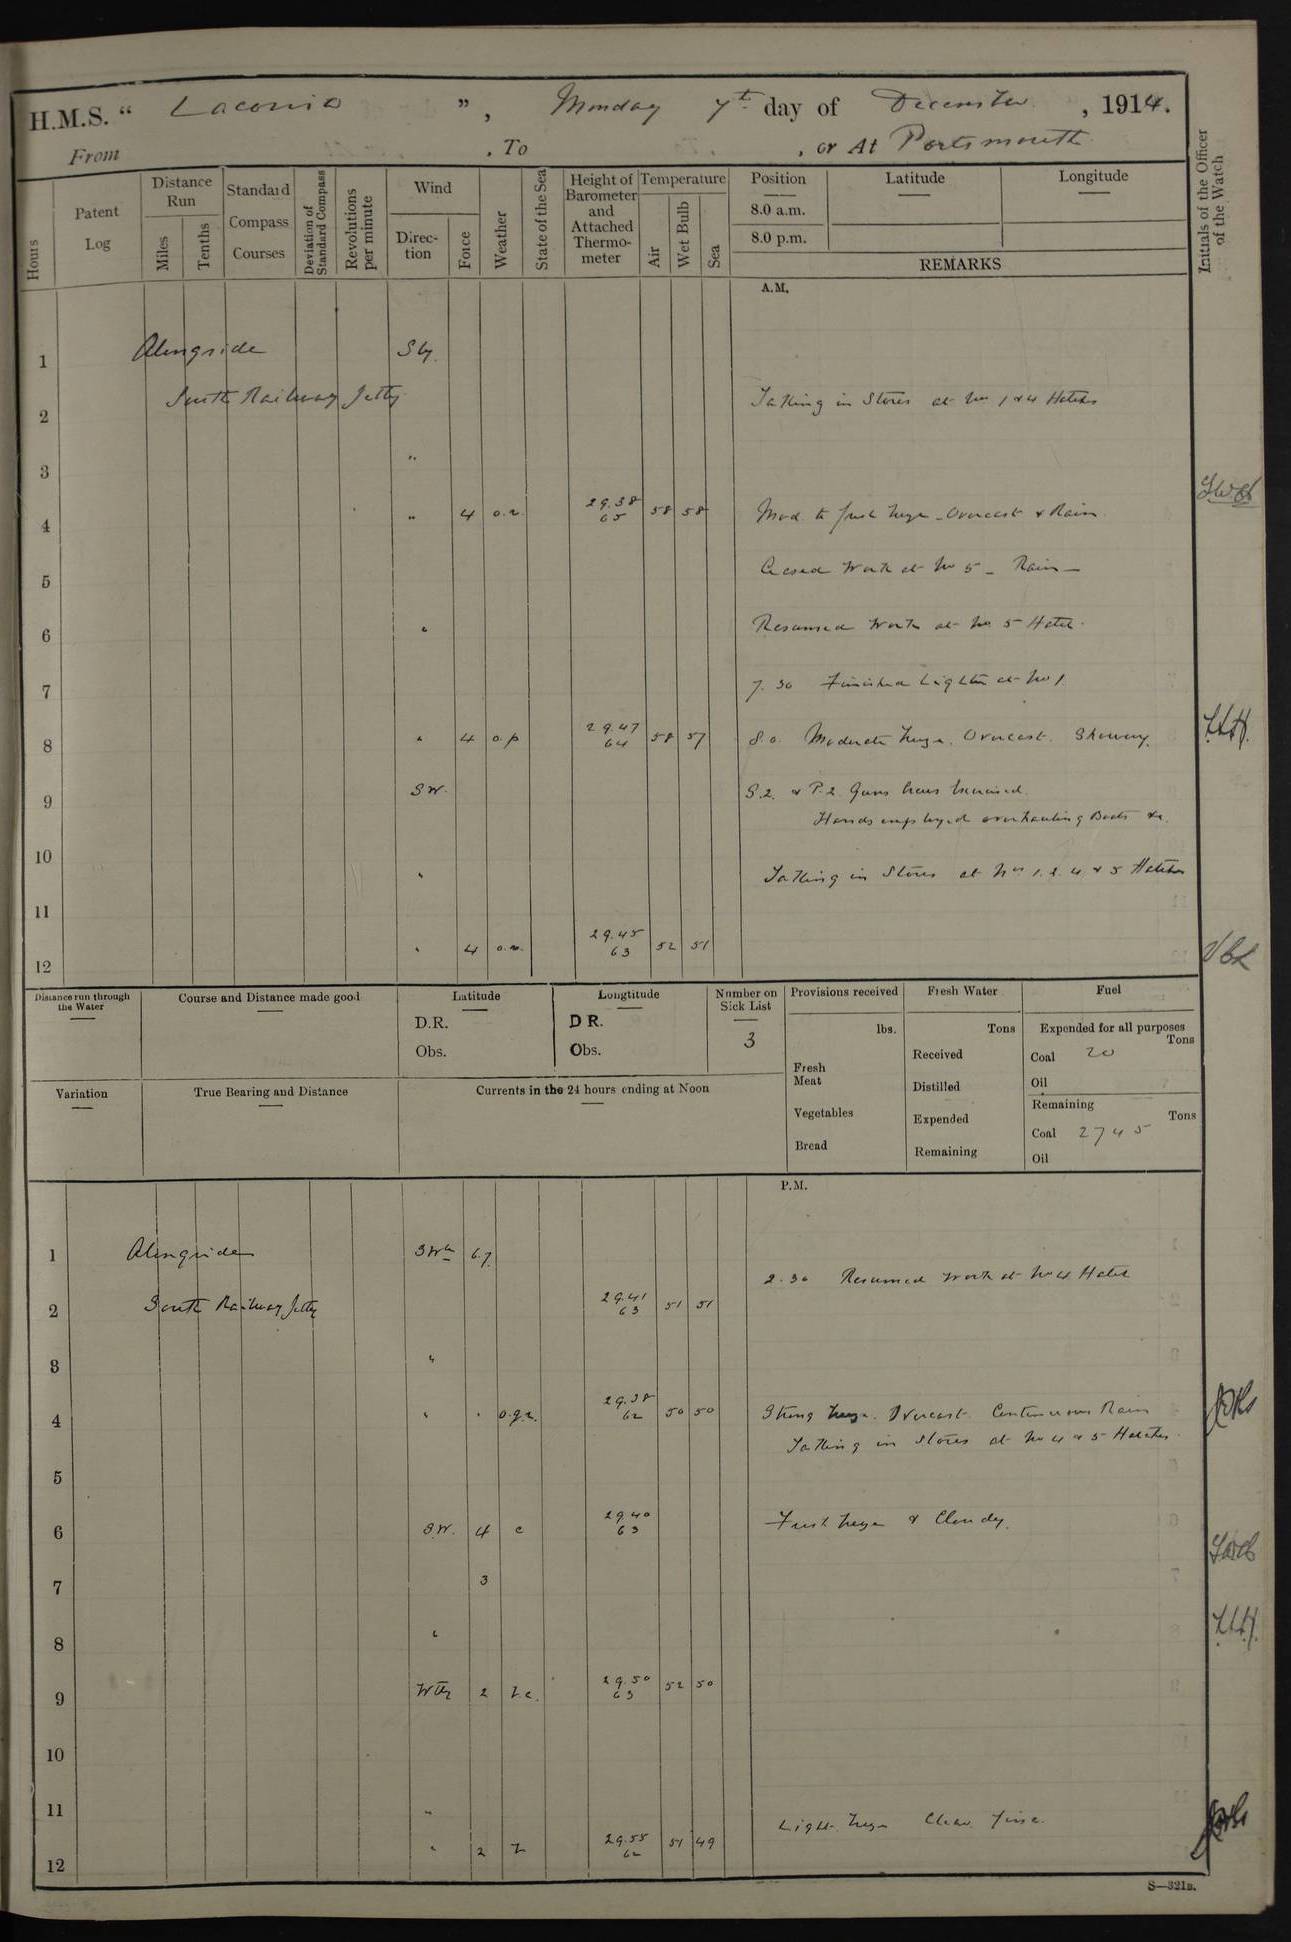 H.M.S. " Laconia ", Monday 7th day of December, 1914.
From , To , or At Portsmouth
Hours
Patent Log
Distance Run
Miles
Tenths
Standard Compass Courses
Deviation of Standard Compass
Revolutions per minute
Wind
Direction
Force
Weather
State of the Sea
Height of Barometer and Attached Thermometer
Temperature
Air
Wet Bulb
Sea
Position
8.0 a.m.
8.0 p.m.
Latitude
Longitude
REMARKS
Initials of the Officer of the Watch
A.M.
1 Alongside Sly.
2 South Railway Jetty Taking in Stores at Nos 1 & 4 Hatches
3 "
4 " 4 o.r. 29.38 65 58 58 Mod. to fresh breeze - Overcast & Rain
5 Ceased work at No 5 - Rain -
6 " Resumed work at No 5 Hatch.
7 7.30 Finished Lighter at No 1
8 " 4 o.p 29.47 64 58 57 8.0 Moderate breeze. Overcast. Showery.
9 SW. S.2. & P.2. Guns Crews Exercised.
Hands employed overhauling Boats &c.
10 " Taking in Stores at Nos 1, 2, 4 & 5 Hatches
11
12 " 4 o.r. 29.45 63 52 51
Distance run through the Water
Course and Distance made good
Latitude
D.R.
Obs.
Longtitude
D R.
Obs.
Number on Sick List
3
Provisions received
lbs.
Fresh Meat
Vegetables
Bread
Fresh Water
Tons
Received
Distilled
Expended
Remaining
Fuel
Expended for all purposes
Tons
Coal 20
Oil
Remaining
Tons
Coal 2745
Oil
Variation
True Bearing and Distance
Currents in the 24 hours ending at Noon
P.M.
1 Alongside 6.7.
2.30 Resumed work at No 4 Hatch
2 South Railway Jetty 29.41 63 51 51
3 "
4 " " o.q.r. 29.38 62 50 50 Strong breeze. Overcast. Continuous Rain
Taking in Stores at No 4 & 5 Hatches.
5
6 S.W. 4 c 29.40 63 Fresh breeze & Cloudy.
7 3
8 "
9 Wly 2 b.c. 29.50 63 52 50
10
11 "
Light breeze Clear fine.
12 " 2 b 29.55 62 51 49
S—321B.